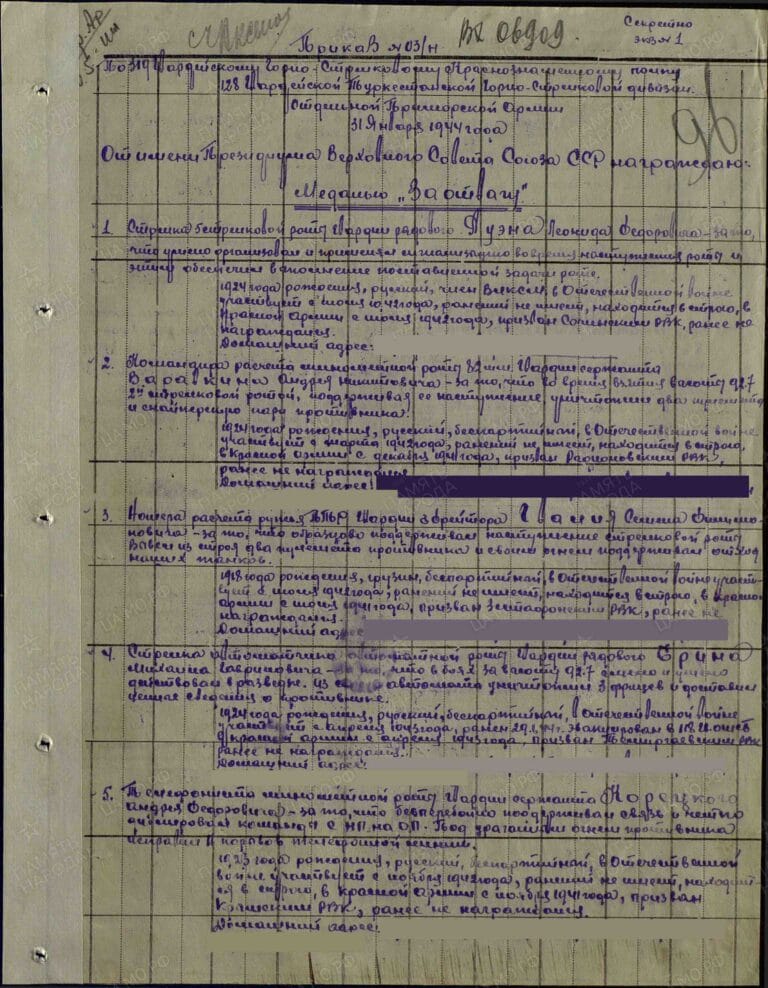 Секретно
экз № 1
Приказ № 03/н
Вх 06909.
96
По 319 Гвардейскому Горно-Стрелковому Краснознаменному полку
128 Гвардейской Туркестанской Горно-Стрелковой дивизии.
Отдельной Приморской Армии
31 Января 1944 года
От имени Президиума Верховного Совета Союза ССР награждаю:
Медалью „За отвагу"
1. Стрелка стрелковой роты Гвардии рядового Леонида Федоровича - за то,
что умело организовал и применял сигнализацию во время наступления роты и
этим обеспечил выполнение поставленной задачи роте.
1924 года рождения, русский, член ВЛКСМ, в Отечественной войне
участвует с июля 1942 года, ранений не имеет, находится в строю, в
Красной армии с июля 1942 года, призван Сочинским РВК, ранее не
награждался.
Домашний адрес:
2. Командира расчета минометной роты 82 мм Гвардии сержанта
Андрея Никитовича - за то, что во время взятия высоты 92.7
2ой стрелковой ротой, поддерживая ее наступление уничтожил два пулемета
и снайперскую пару противника.
1921 года рождения, русский, беспартийный, в Отечественной войне
участвует с марта 1942 года, ранений не имеет, находится в строю,
в Красной армии с декабря 1941 года, призван РВК,
ранее не награждался
Домашний адрес:
3. Номера расчета ружья ПТР Гвардии ефрейтора
- за то, что образцово поддерживал наступление стрелковой роты
Вывел из строя два пулемета противника и своим огнем поддерживал отход
наших танков.
1918 года рождения, грузин, беспартийный, в Отечественной войне участ-
вует с июля 1942 года, ранений не имеет, находится в строю, в Красной
армии с июля 1941 года, призван РВК, ранее не
награждался.
Домашний адрес
4. Стрелка автоматчика автоматной роты Гвардии рядового Ерина
Михаила Гавриловича - за то, что в боях за высоту 92.7 смело и умело
действовал в разведке. Из автомата уничтожил 3 фрицев и доставил
ценные сведения о противнике.
1924 года рождения, русский, беспартийный, в Отечественной войне
участвует с апреля 1943 года, ранен эвакуирован в
в Красной армии с апреля 1943 года, призван РВК
ранее не награждался.
Домашний адрес:
5. Телефониста минометной роты Гвардии сержанта Корецкого
Андрея Федоровича - за то, что бесперебойно поддерживал связь и четко
дублировал команды с НП на ОП. Под ураганным огнем противника
исправил 11 порывов телефонной линии.
1923 года рождения, русский, беспартийный, в Отечественной
войне участвует с ноября 1942 года, ранений не имеет, находит-
ся в строю, в Красной армии с ноября 1941 года, призван
РВК, ранее не награждался.
Домашний адрес: